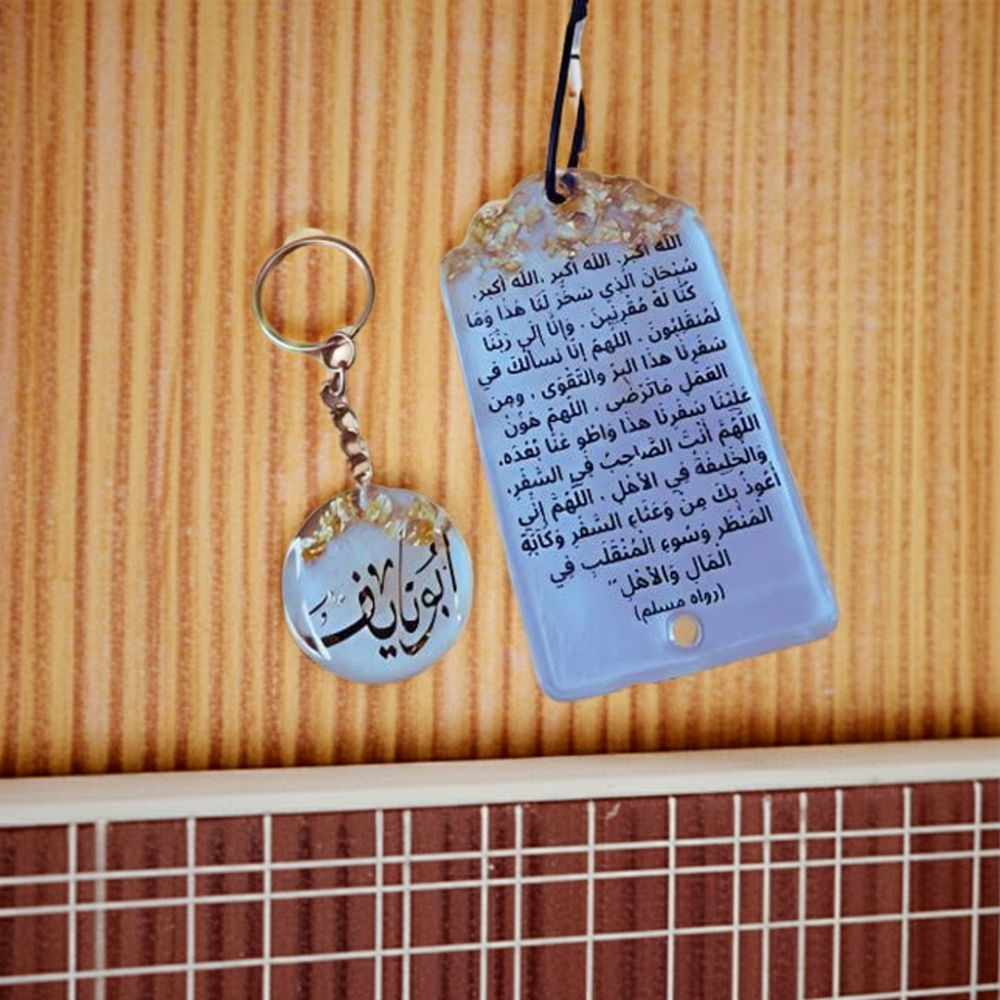 أبو نايف
الله أكبر. الله أكبر .الله أكبر.
سُبْحَانَ الَّذِي سَخَّرَ لَنَا هَذَا وَمَا
كُنَّا لَهُ مُقْرِنِينَ . وَإِنَّا إِلَى رَبِّنَا
لَمُنقَلِبُونَ . اللهمّ إنّا نسألك في
سَفَرِنَا هذا البِرَّ والتَّقْوَى ، ومِن
العَمَلِ مَاتَرْضَى ، اللهمّ هَوِّنْ
عَلَيْنَا سَفَرَنَا هذا وَاطْوِ عَنَّا بُعْدَه،
اللَّهُمَّ أَنْتَ الصَّاحِبُ فِي السَّفَرِ،
وَالخَلِيفَةُ فِي الأَهْلِ ، اللَّهُمَّ إِنِّي
أَعُوذُ بِكَ مِنْ وَعْثَاءِ السَّفَرِ وَكَآبَةِ
الْمَنْظَرِ وَسُوءِ الْمُنْقَلَبِ فِي
الْمَالِ وَالأَهْلِ"
(رواه مسلم)